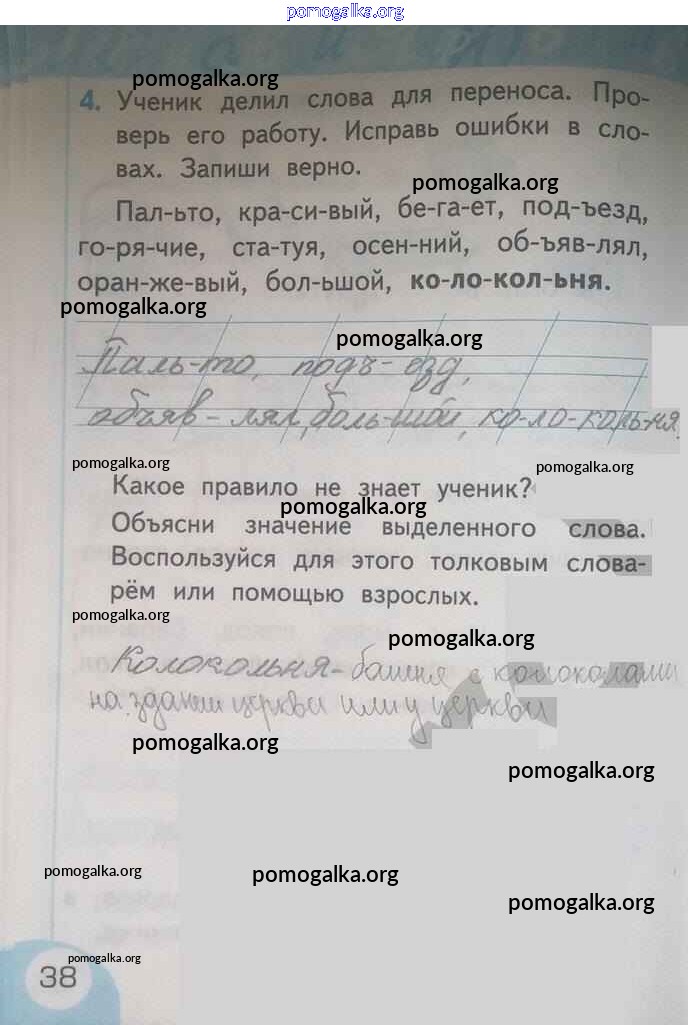 pomogalka.org
pomogalka.org
4. Ученик делил слова для переноса. Про-
верь его работу. Исправь ошибки в сло-
вах. Запиши верно.
pomogalka.org
Пал-ьто, кра-си-вый, бе-га-ет, под-ъезд,
го-ря-чие, ста-туя, осен-ний, об-ъяв-лял,
оран-же-вый, бол-ьшой, ко-ло-кол-ьня.
pomogalka.org
pomogalka.org
Паль-то, подъ-езд,
объяв-лял, боль-шой, ко-ло-коль-ня.
pomogalka.org
pomogalka.org
Какое правило не знает ученик?
pomogalka.org
Объясни значение выделенного слова.
Воспользуйся для этого толковым слова-
рём или помощью взрослых.
pomogalka.org
pomogalka.org
Колокольня-башня с колоколами
на здании церкви или у церкви
pomogalka.org
pomogalka.org
pomogalka.org
pomogalka.org
pomogalka.org
pomogalka.org
38